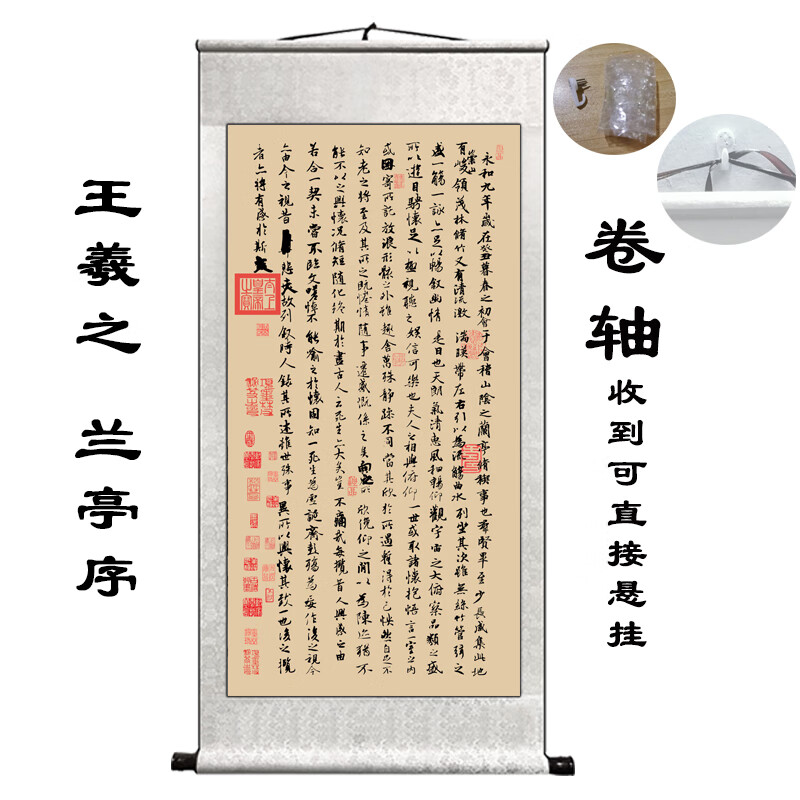 王羲之 兰亭序
永和九年歲在癸丑暮春之初會于會稽山陰之蘭亭脩稧事也羣賢畢至少長咸集此地
有崇山峻領茂林脩竹又有清流激湍暎帶左右引以為流觴曲水列坐其次雖無絲竹管弦之
盛一觴一詠亦足以暢敘幽情是日也天朗氣清惠風和暢仰觀宇宙之大俯察品類之盛
所以遊目騁懷足以極視聽之娛信可樂也夫人之相與俯仰一世或取諸懷抱悟言一室之內
或因寄所託放浪形骸之外雖趣舍萬殊靜躁不同當其欣於所遇暫得於己怏然自足不
知老之將至及其所之既惓情隨事遷感慨係之矣向之所欣俛仰之間以為陳迹猶不
能不以之興懷況脩短隨化終期於盡古人云死生亦大矣豈不痛哉每攬昔人興感之由
若合一契未嘗不臨文嗟悼不能喻之於懷固知一死生為虛誕齊彭殤為妄作後之視今
亦由今之視昔悲夫故列敘時人錄其所述雖世殊事異所以興懷其致一也後之攬
者亦將有感於斯文
太上皇帝之寶
卷轴收到可直接悬挂